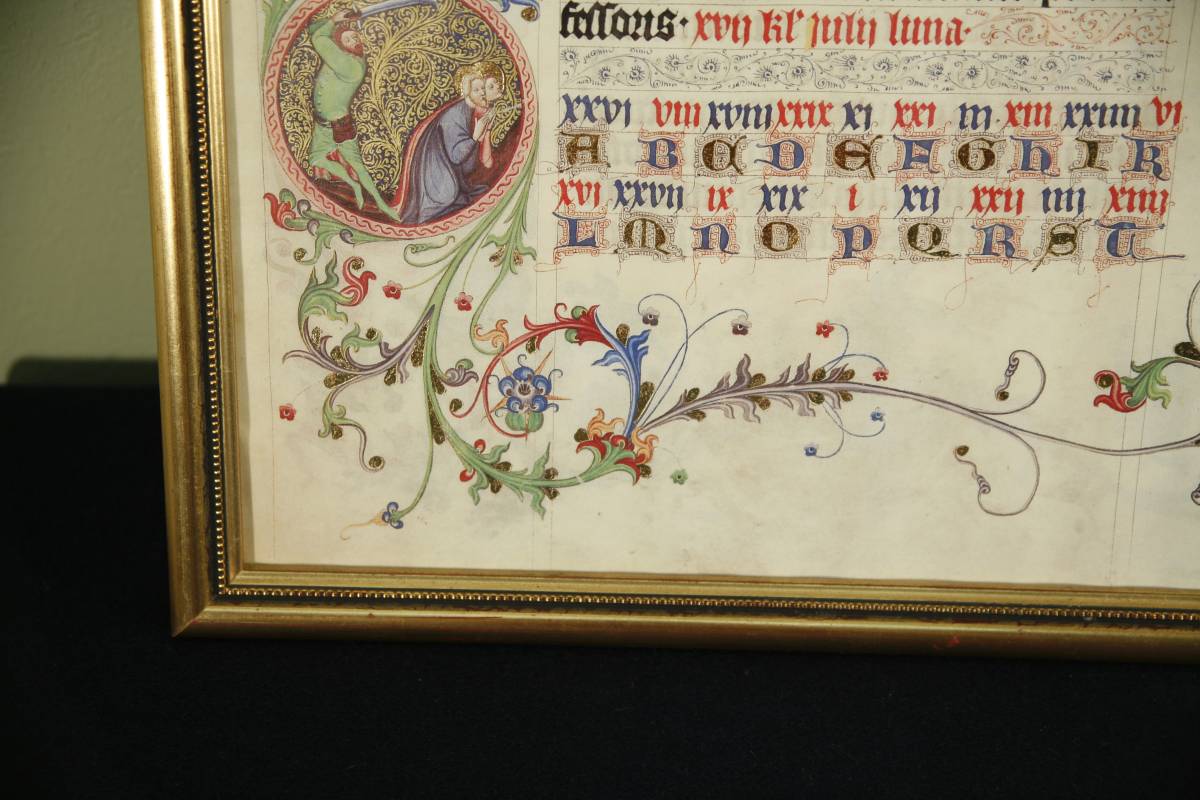 fessoris · xvij kł julij luna ·
xxvi viii xviii xxix xi xxi iii xiii xxiiii vi
A B C D E F G H I K
xvi xxvii ix xix i xii xxii iiii xiiii
L M N O P Q R S T